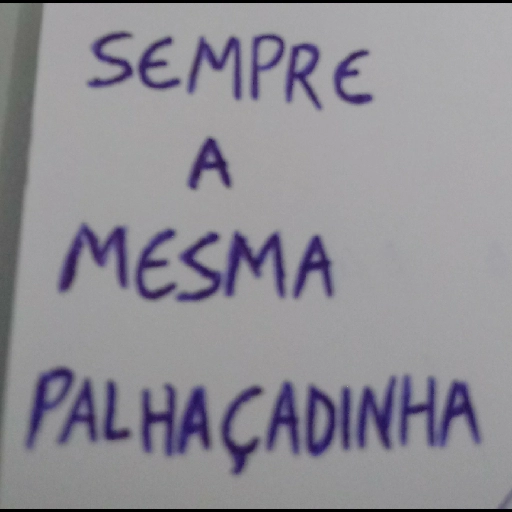 SEMPRE
A
MESMA
PALHAÇADINHA